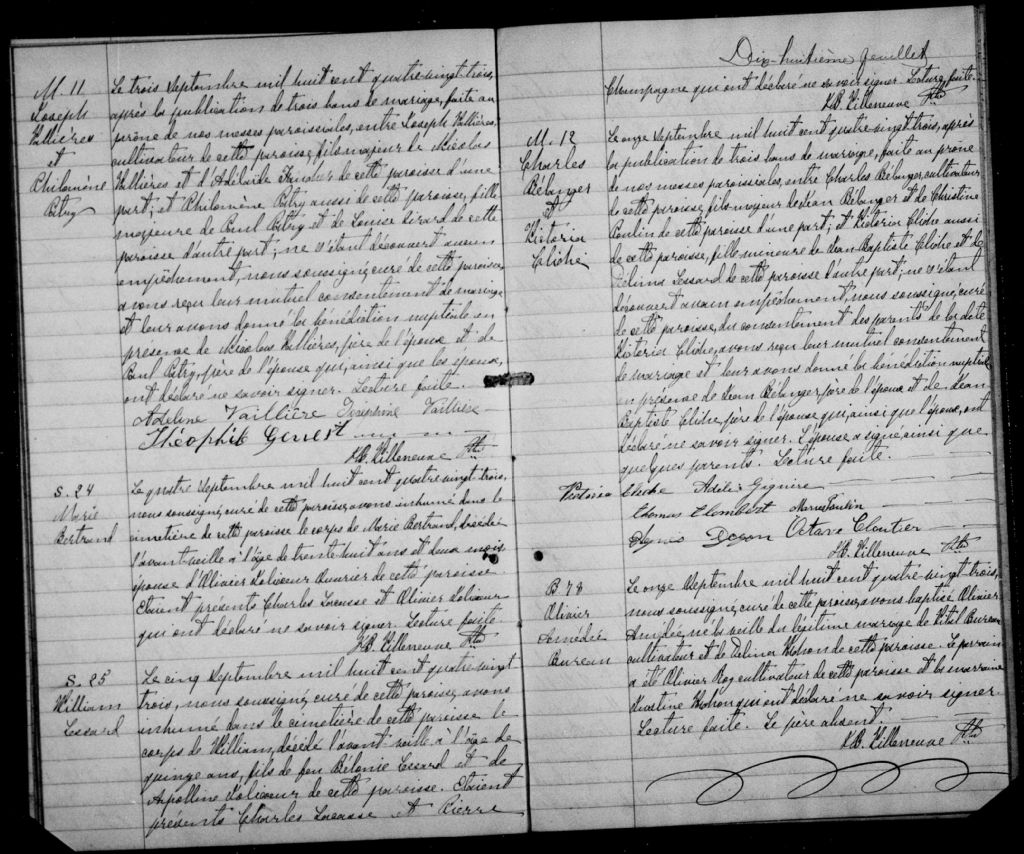 M. 11
Joseph
Vallières
et
Philomène
Pitry
Le trois Septembre mil huit cent quatre-vingt-trois,
après la publication de trois bans de mariage, faite au
prône de nos messes paroissiales, entre Joseph Vallières,
cultivateur de cette paroisse, fils majeur de Nicolas
Vallières et d'Adelaïde de cette paroisse d'une
part; et Philomène Pitry aussi de cette paroisse, fille
majeure de Paul Pitry et de Louise Sirard de cette
paroisse d'autre part; ne s'étant découvert aucun
empêchement, nous soussigné, curé de cette paroisse,
avons reçu leur mutuel consentement de mariage
et leur avons donné la bénédiction nuptiale en
présence de Nicolas Vallières, père de l'époux et de
Paul Pitry, père de l'épouse qui, ainsi que les époux,
ont déclaré ne savoir signer. Lecture faite.
Adeline Vaillière Joséphine Vaillière
Théophile Genest
J.B. Villeneuve Ptre
S. 24
Marie
Bertrand
Le quatre Septembre mil huit cent quatre vingt trois,
nous soussigné, curé de cette paroisse, avons inhumé dans le
cimetière de cette paroisse le corps de Marie Bertrand, décédée
l'avant-veille à l'âge de trente-huit ans et deux mois,
épouse d'Olivier Jolicoeur Ouvrier de cette paroisse.
Etaient présents Charles Lacasse et Olivier Jolicoeur
qui ont déclaré ne savoir signer. Lecture faite.
J.B. Villeneuve Ptre
S. 25
William
Lessard
Le cinq Septembre mil huit cent quatre-vingt
trois, nous soussigné, curé de cette paroisse, avons
inhumé dans le cimetière de cette paroisse le
corps de William, décédé l'avant-veille à l'âge de
quinze ans, fils de feu Bélonie Lessard et de
Appolline Jolicoeur de cette paroisse. Etaient
présents Charles Lacasse et Pierre
Dix-huitième feuillet
Champagne qui ont déclaré ne savoir signer. Lecture faite.
J.B. Villeneuve Ptre
M. 12
Charles
Bélanger
et
Victoria
Cliche
Le onze Septembre mil huit cent quatre-vingt trois, après
la publication de trois bans de mariage, faite au prône
de nos messes paroissiales, entre Charles Bélanger, cultivateur
de cette paroisse, fils majeur de Jean Bélanger et de Christine
Poulin de cette paroisse d'une part; et Victoria Cliche aussi
de cette paroisse, fille mineure de Jean Baptiste Cliche et de
Délima Lessard de cette paroisse d'autre part; ne s'étant
découvert aucun empêchement, nous soussigné, curé
de cette paroisse, du consentement des parents de la dite
Victoria Cliche, avons reçu leur mutuel consentement
de mariage et leur avons donné la bénédiction nuptiale
en présence de Jean Bélanger, père de l'époux et de Jean
Baptiste Cliche, père de l'épouse qui, ainsi que l'époux, ont
déclaré ne savoir signer. L'épouse a signé ainsi que
quelques parents. Lecture faite.
Victoria Cliche Adelie Giguère
Thomas Marie Poulin
Octave Cloutier
J.B. Villeneuve Ptre
B 78
Olivier
Amédée
Bureau
Le onze Septembre mil huit cent quatre-vingt-trois,
nous soussigné, curé de cette paroisse, avons baptisé Olivier
Amédée, né la veille du légitime mariage de Vital Bureau
cultivateur et de Délina de cette paroisse. Le parrain
a été Olivier Roy cultivateur de cette paroisse et la marraine
qui ont déclaré ne savoir signer.
Lecture faite. Le père absent.
J.B. Villeneuve Ptre